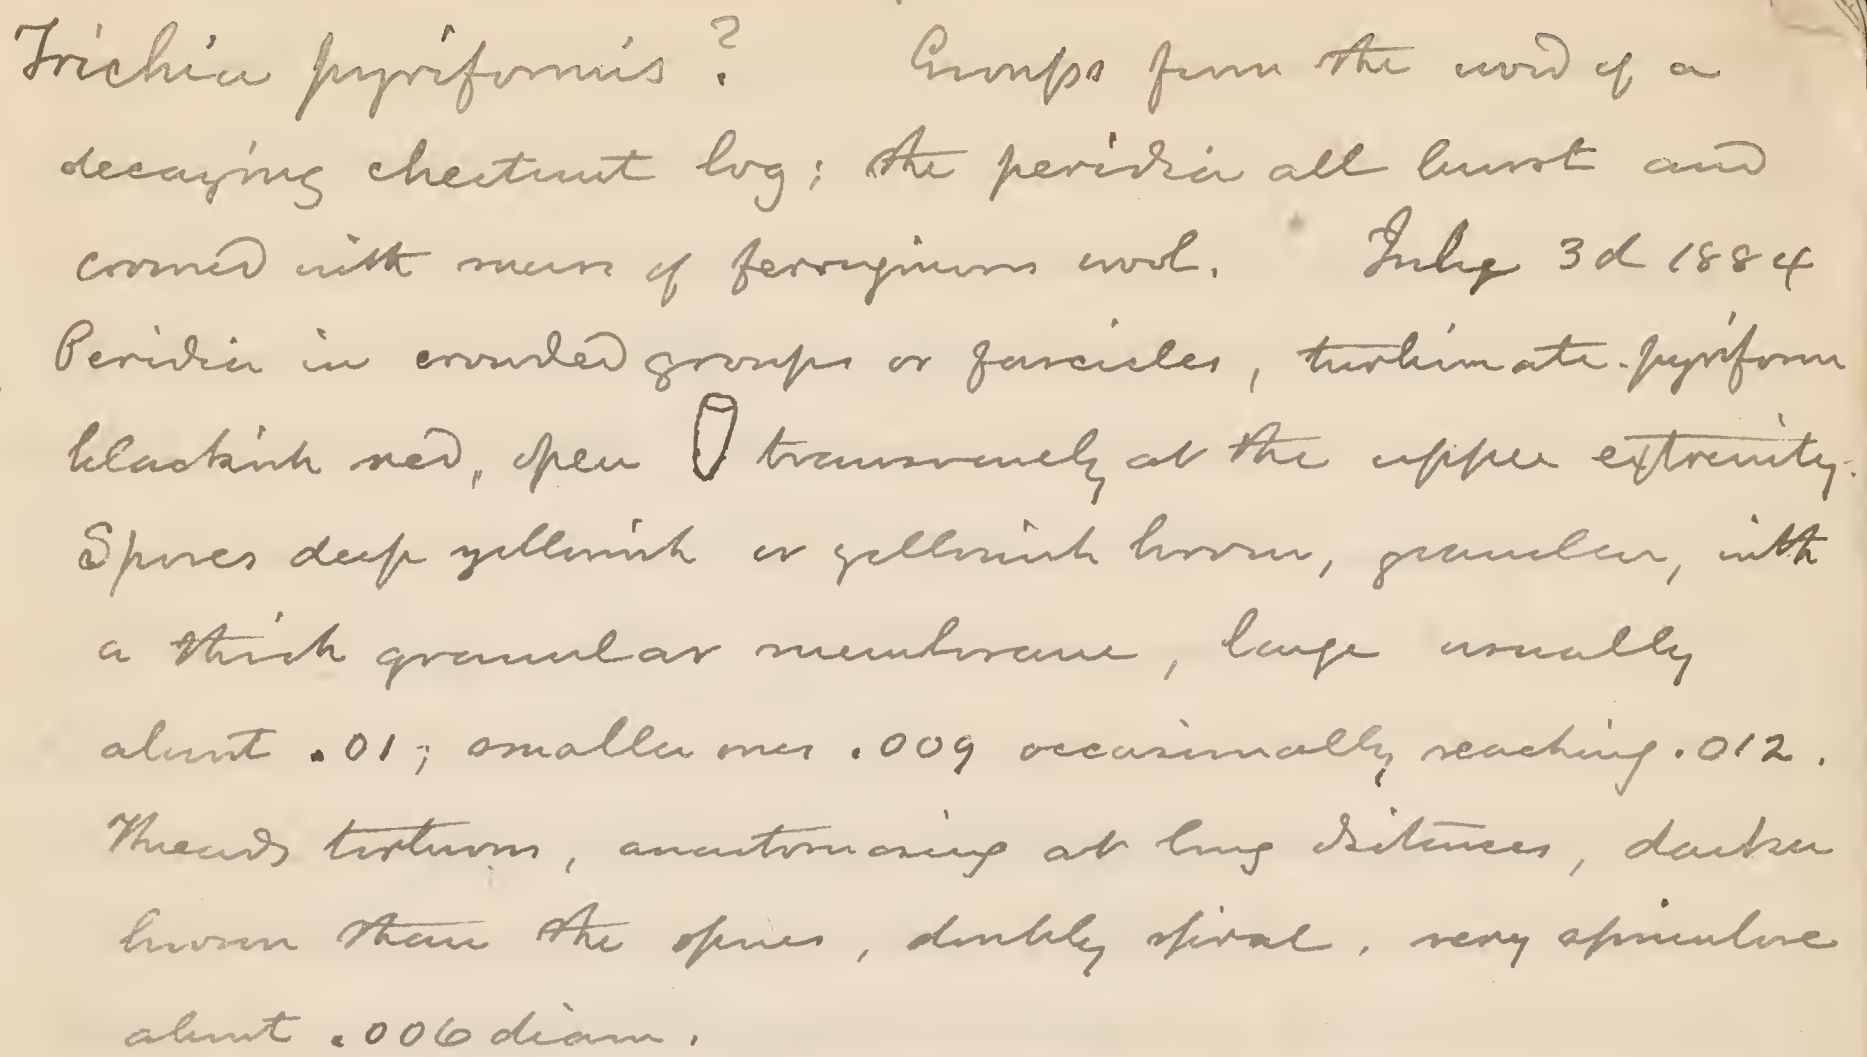 Trichia pyriformis? Groups from the wood of a
decaying chestnut log; the peridia all burst and
crowned with masses of ferruginous wool. July 3d 1884
Peridia in crowded groups or fascicles, turbinate-pyriform
blackish red, open transversely at the upper extremity.
Spores deep yellowish or yellowish brown, granular, with
a thick granular membrane, large usually
about .01; smaller ones .009 occasionally reaching .012.
Threads tortuous, anastomosing at long distances, darker
brown than the spores, doubly spiral, very spinulose
about .006 diam.